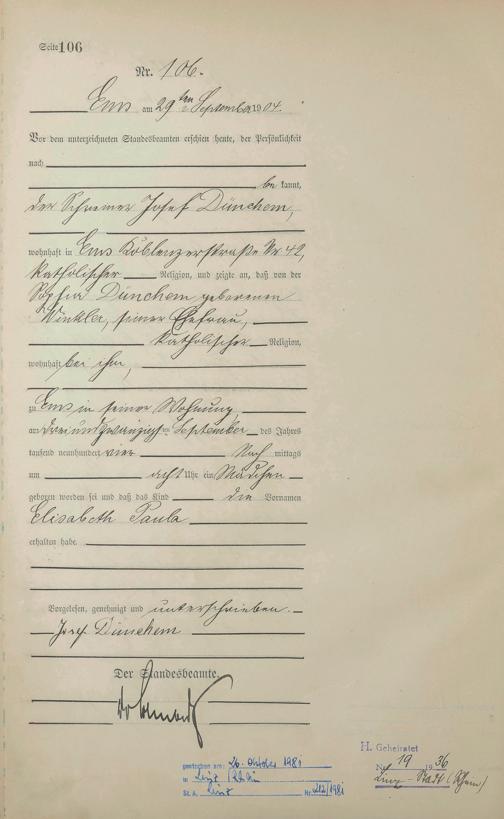 Seite 106
Nr. 106.
Ems am 29ten September 1904.
Vor dem unterzeichneten Standesbeamten erschien heute, der Persönlichkeit
nach
be kannt,
der Schreiner Josef Dünchem,
wohnhaft in Ems Koblenzerstraße Nr 42,
katholischer Religion, und zeigte an, daß von der
Sophia Dünchem geborenen
Winkler, seiner Ehefrau,
katholischer Religion,
wohnhaft bei ihm,
zu Ems in seiner Wohnung,
am dreiundzwanzigsten September des Jahres
tausend neunhundert vier Nach mittags
um acht Uhr ein Mädchen
geboren worden sei und daß das Kind die Vornamen
Elisabeth Paula
erhalten habe.
Vorgelesen, genehmigt und unterschrieben.
Josef Dünchem
Der Standesbeamte.
H. Geheiratet
Nr 19 1936
Linz - Stadt (Rhein)
gestorben am: 26. Oktober 1981
in Linz/Rhein
St. A. Linz Nr. 212/1981